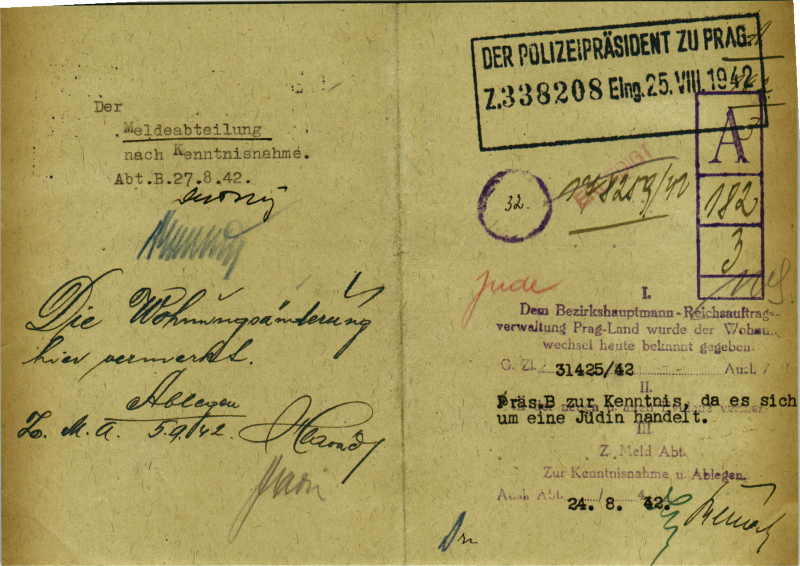 Der
Meldeabteilung
nach Kenntnisnahme.
Abt.B.27.8.42.
Die Wohnungsänderung
hier vermerkt.
Ablegen
Z. M. A. 5.9.42.
DER POLIZEIPRÄSIDENT ZU PRAG.
Z.338208 Eing. 25. VIII. 1942
A
182
3
32.
8259/42
Jude
I.
Dem Bezirkshauptmann-Reichsauftrags-
verwaltung Prag-Land wurde der Wohnu
wechsel heute bekannt gegeben.
G. Zl. 31425/42 Ausl. /
II.
Präs.B zur Kenntnis, da es sich
um eine Jüdin handelt.
III.
Z. Meld Abt.
Zur Kenntnisnahme u. Ablegen.
Ausl. Abt. 24. 8. 42.